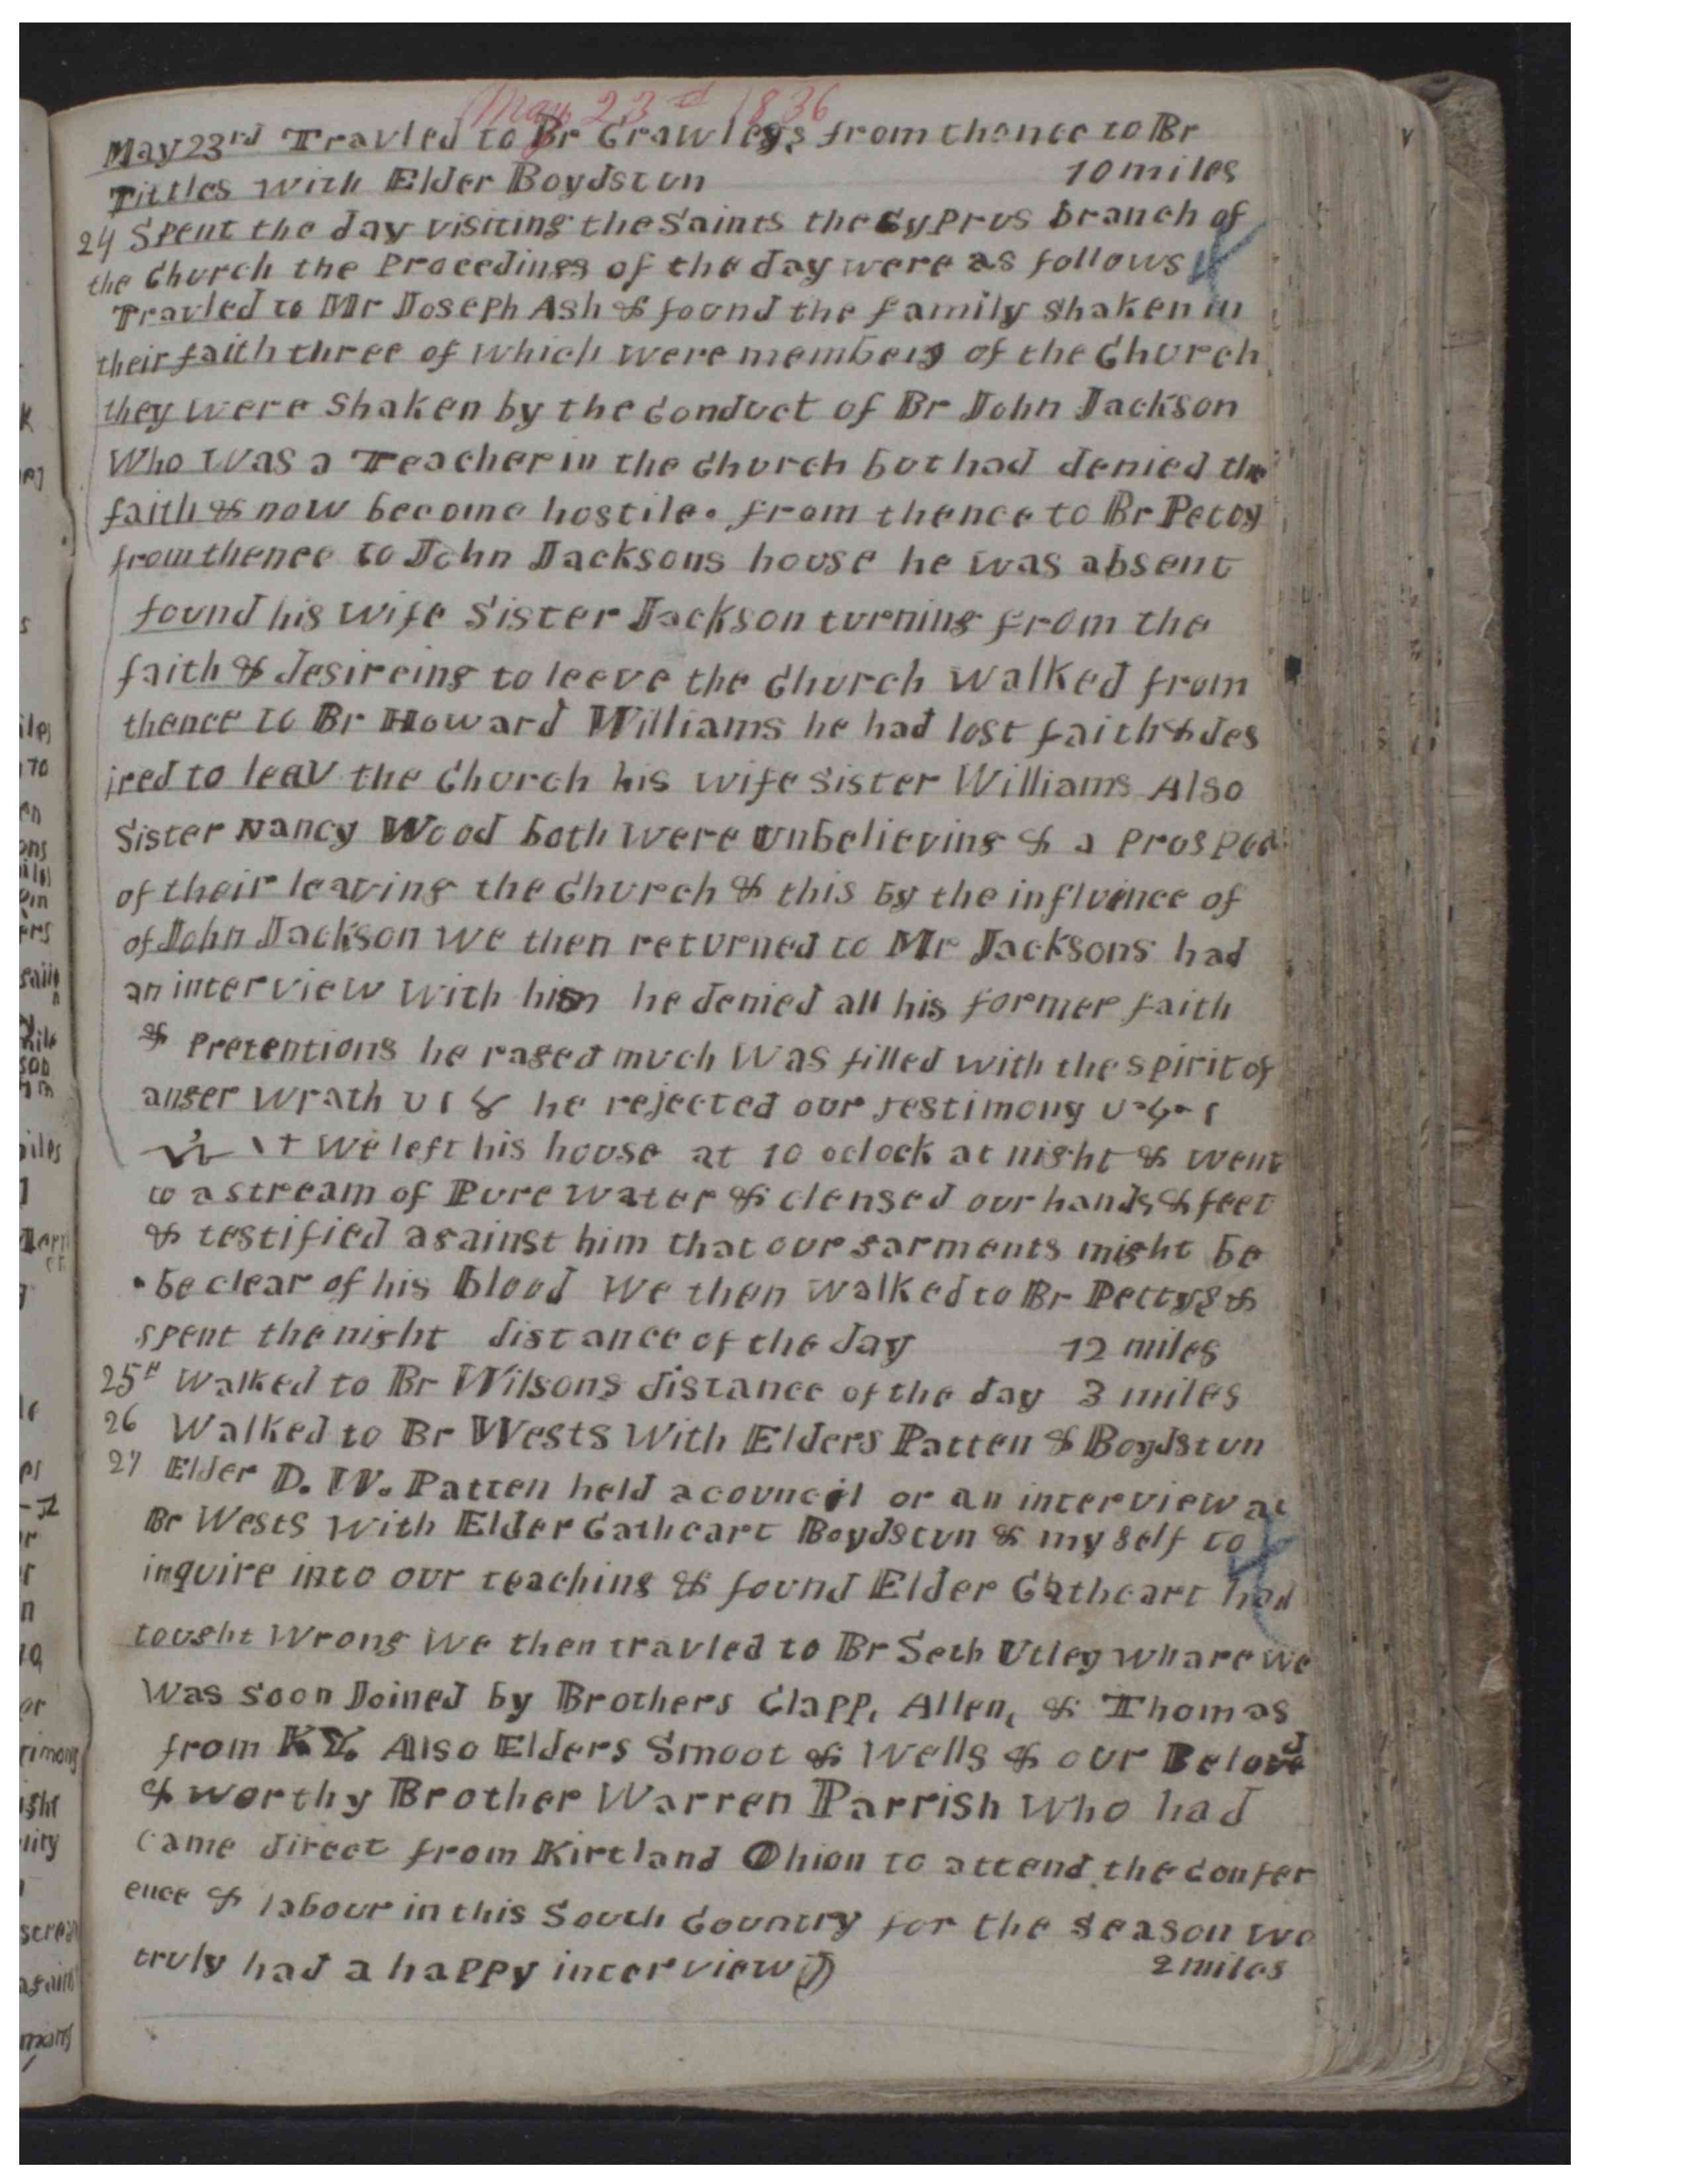 May 23rd 1836
May 23rd Travled to Br Crawleys from thence to Br
Tittles with Elder Boydstun 10 miles
24 Spent the day visiting the Saints the Cyprus branch of
the Church the Procedings of the day were as follows
Travled to Mr Joseph Ash & found the family shaken in
their faith three of which were members of the Church
they were shaken by the Conduct of Br John Jackson
Who was a Teacher in the Church but had denied the
faith & now become hostile. from thence to Br Petty
from thence to John Jacksons house he was absent
found his wife Sister Jackson turning from the
faith & desireing to leeve the Church walked from
thence to Br Howard Williams he had lost faith & des
ired to leav the Church his wife Sister Williams Also
Sister Nancy Wood both were unbelieving & a Prospect
of their leaving the Church & this by the influence of
of John Jackson we then returned to Mr Jacksons had
an interview with him he denied all his former faith
& Pretentions he raged much was filled with the spirit of
anger wrath he rejected our testimony
we left his house at 10 oclock at night & went
to a stream of Pure water & clensed our hands & feet
& testified against him that our garments might be
be clear of his blood We then walked to Br Pettys &
spent the night distance of the day 12 miles
25th Walked to Br Wilsons distance of the day 3 miles
26 Walked to Br Wests With Elders Patten & Boydstun
27 Elder D. W. Patten held a council or an interview at
Br Wests with Elder Cathcart Boydstun & my self to
inquire into our teaching & found Elder Cathcart had
tought wrong We then travled to Br Seth Utley whare we
was soon Joined by Brothers Clapp, Allen, & Thomas
from KY. Also Elders Smoot & Wells & our Beloved
& worthy Brother Warren Parrish who had
came direct from Kirtland Ohion to attend the Confer
ence & labour in this South Country for the season we
truly had a happy interview 2 miles